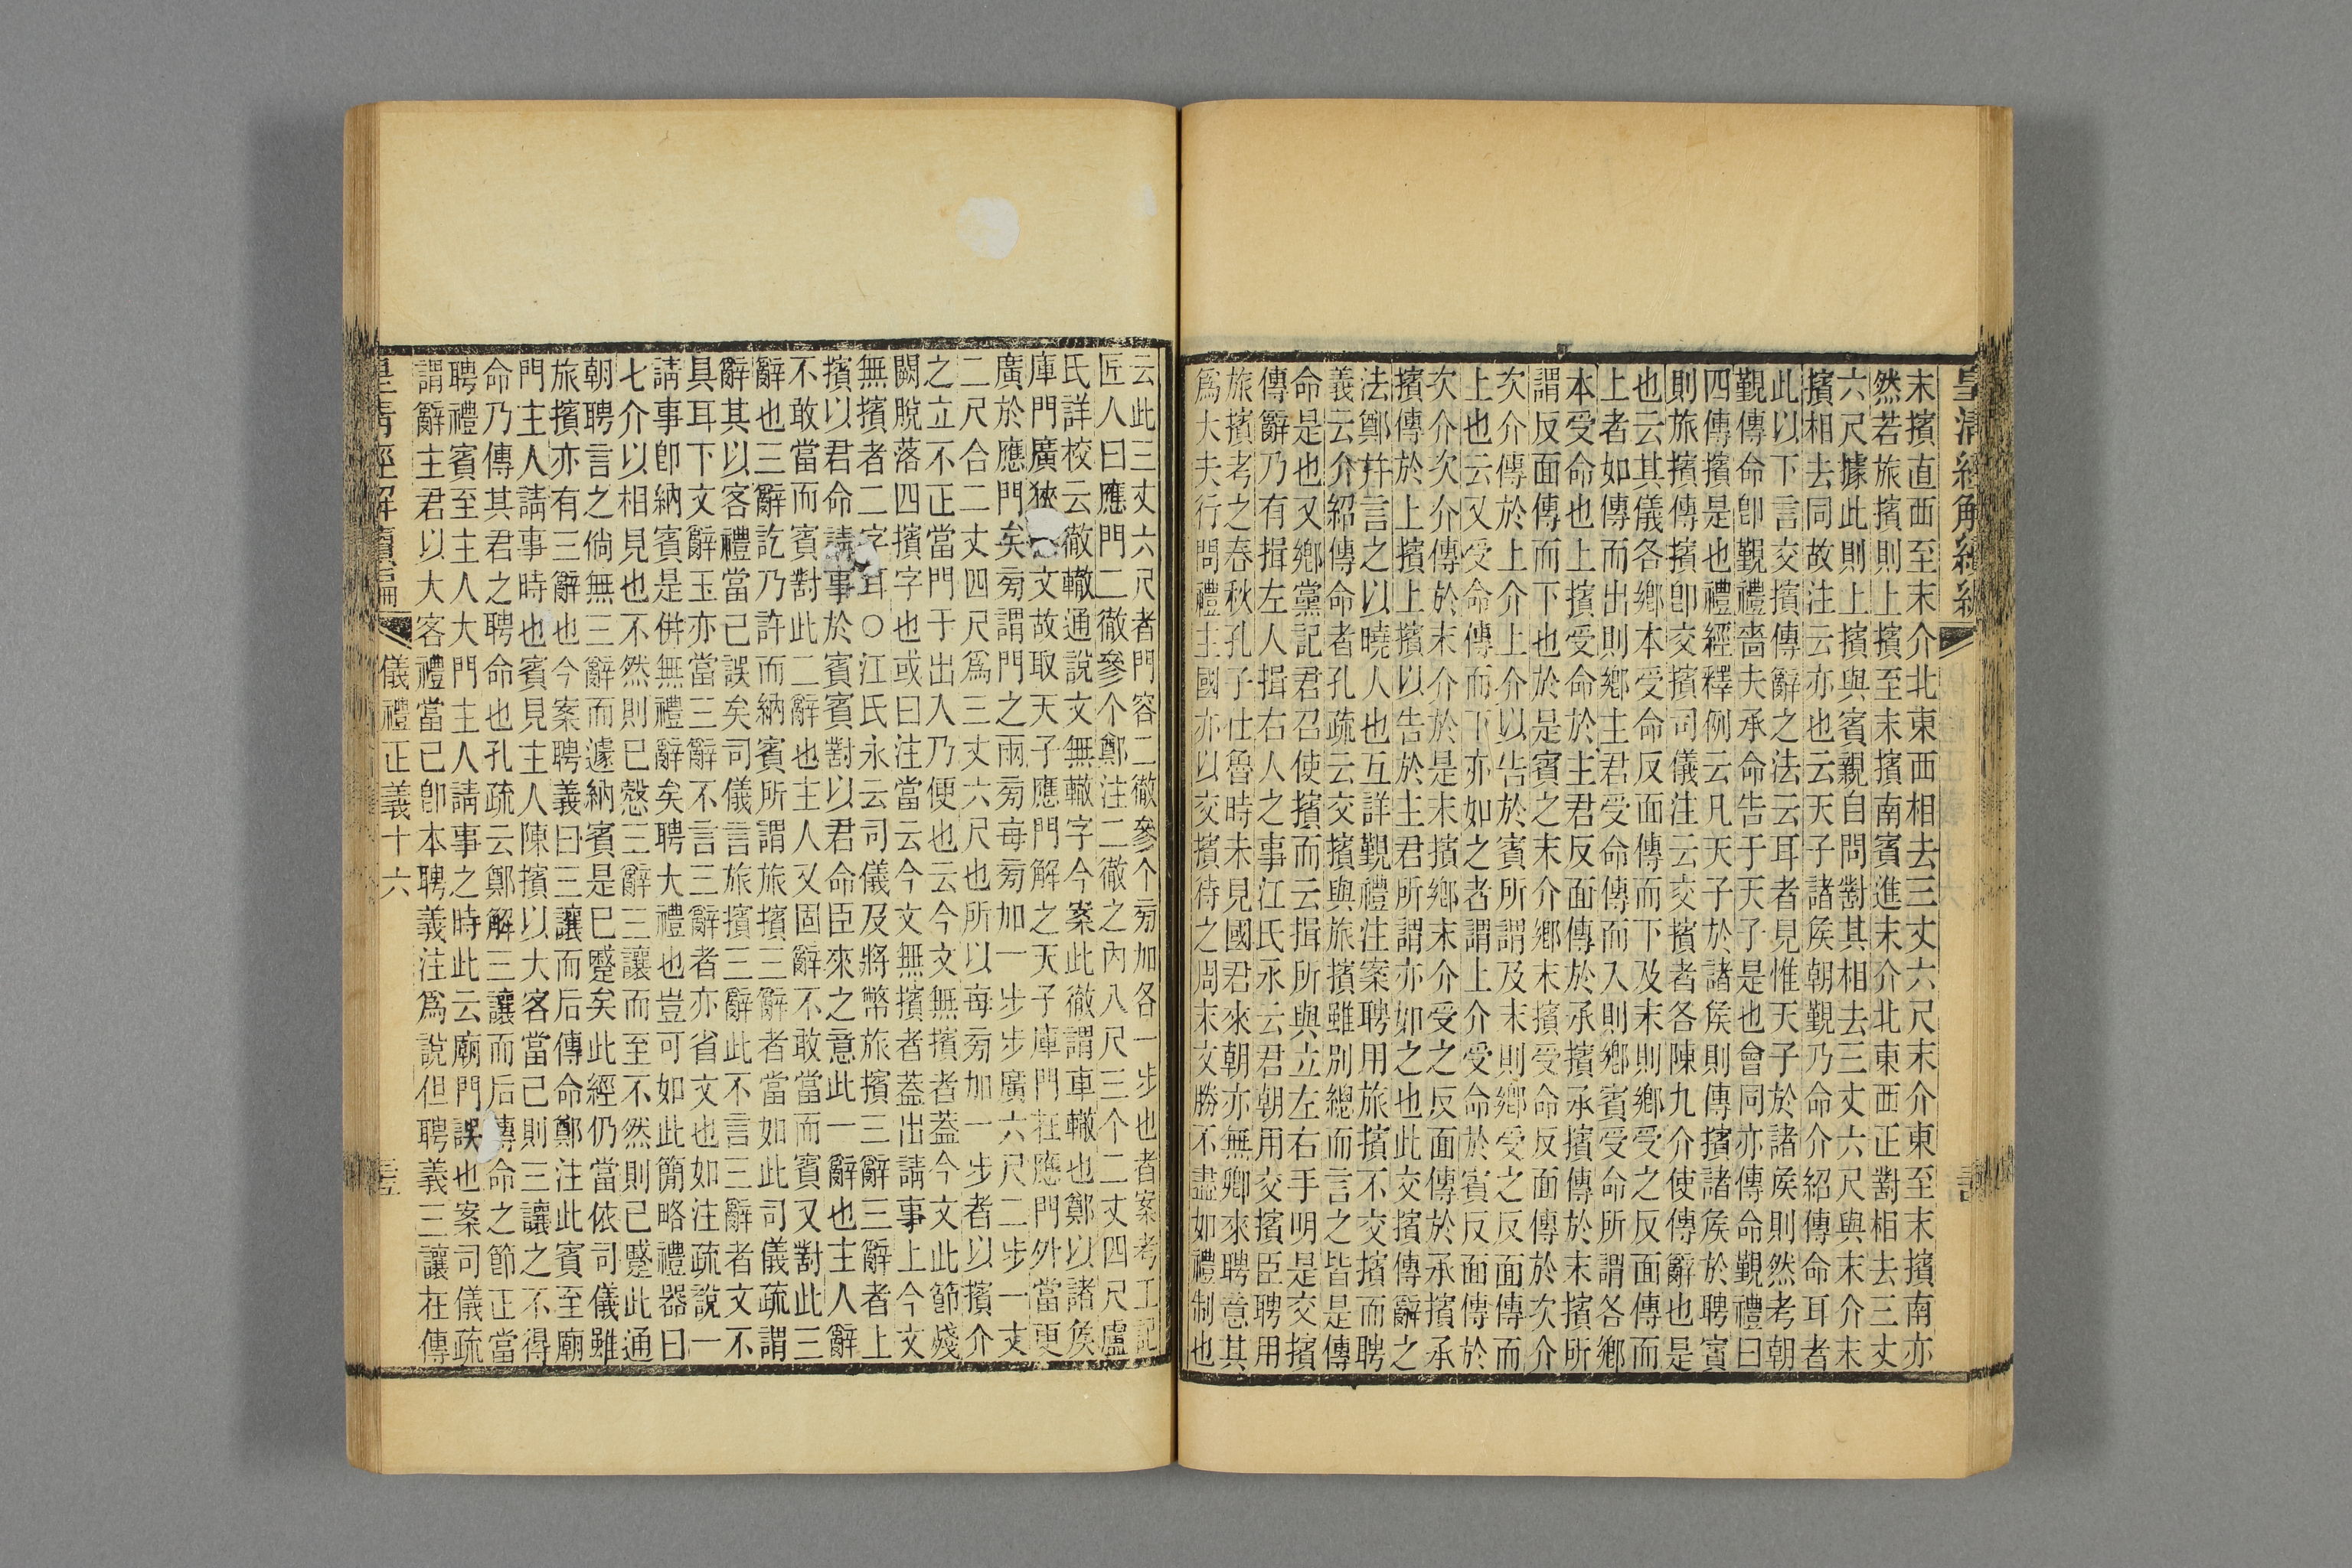 皇清經解續編
末擯直西至末介北東西相去三丈六尺末介東至末擯南亦
然若旅擯則上擯至末擯南賓進末介北東西正對相去三丈
六尺據此則上擯與賓親自問對其相去三丈六尺與末介末
擯相去同故注云亦也云天子諸侯朝覲乃命介紹傳命耳者
此以下言交擯傳辭之法云耳者見惟天子於諸侯則然考朝
覲傳命卽覲禮嗇夫承命告于天子是也會同亦傳命覲禮曰
四傳擯是也禮經釋例云凡天子於諸侯則傳擯諸侯於聘賓
則旅擯傳擯卽交擯司儀注云交擯者各陳九介使傳辭也是
也云其儀各鄉本受命反面傳而下及末則鄉受之反面傳而
上者如傳而出則鄉主君受命傳而入則鄉賓受命所謂各鄉
本受命也上擯受命於主君反面傳於承擯承擯傳於末擯所
謂反面傳而下也於是賓之末介鄉末擯受命反面傳於次介
次介傳於上介上介以告於賓所謂及末則鄉受之反面傳而
上也云又受命傳而下亦如之者謂上介受命於賓反面傳於
次介次介傳於末介於是末擯鄉末介受之反面傳於承擯承
擯傳於上擯上擯以告於主君所謂亦如之也此交擯傳辭之
法鄭幷言之以曉人也互詳覲禮注案聘用旅擯不交擯而聘
義云介紹傳命者孔疏云交擯與旅擯雖別總而言之皆是傳
命是也又鄉黨記君召使擯而云揖所與立左右手明是交擯
傳辭乃有揖左人揖右人之事江氏永云君朝用交擯臣聘用
旅擯考之春秋孔子仕魯時未見國君來朝亦無卿來聘意其
爲大夫行問禮主國亦以交擯待之周末文勝不盡如禮制也
云此三丈六尺者門容二徹參个旁加各一步也者案考工記
匠人曰應門二徹參个鄭注二徹之內八尺三个二丈四尺盧
氏詳校云徹轍通說文無轍字今案此徹謂車轍也鄭以諸侯
庫門廣狹文故取天子應門解之天子庫門在應門外當更
廣於應門矣旁謂門之兩旁每旁加一步步廣六尺二步一丈
二尺合二丈四尺爲三丈六尺也所以每旁加一步者以擯介
之立不正當門于出入乃便也云今文無擯者蓋今文此節殘
闕脫落四擯字也或曰注當云今文無擯者蓋出請事上今文
無擯者二字耳〇江氏永云司儀及將幣旅擯三辭三辭者上
擯以君命請事於賓賓對以君命臣來之意此一辭也主人辭
不敢當而賓對此二辭也主人又固辭不敢當而賓又對此三
辭也三辭訖乃許而納賓所謂旅擯三辭者當如此司儀疏謂
辭其以客禮當己誤矣司儀言旅擯三辭此不言三辭者文不
具耳下文辭玉亦當三辭不言三辭者亦省文也如注疏說一
請事卽納賓是併無禮辭矣聘大禮也豈可如此簡略禮器曰
七介以相見也不然則已慤三辭三讓而至不然則已蹙此通
朝聘言之倘無三辭而遽納賓是已蹙矣此經仍當依司儀雖
旅擯亦有三辭也今案聘義曰三讓而后傳命鄭注此賓至廟
門主人請事時也賓見主人陳擯以大客當己則三讓之不得
命乃傳其君之聘命也孔疏云鄭解三讓而后傳命之節正當
聘禮賓至主人大門主人請事之時此云廟門誤也案司儀疏
謂辭主君以大客禮當己卽本聘義注爲說但聘義三讓在傳
皇清經解續編
儀禮正義十六